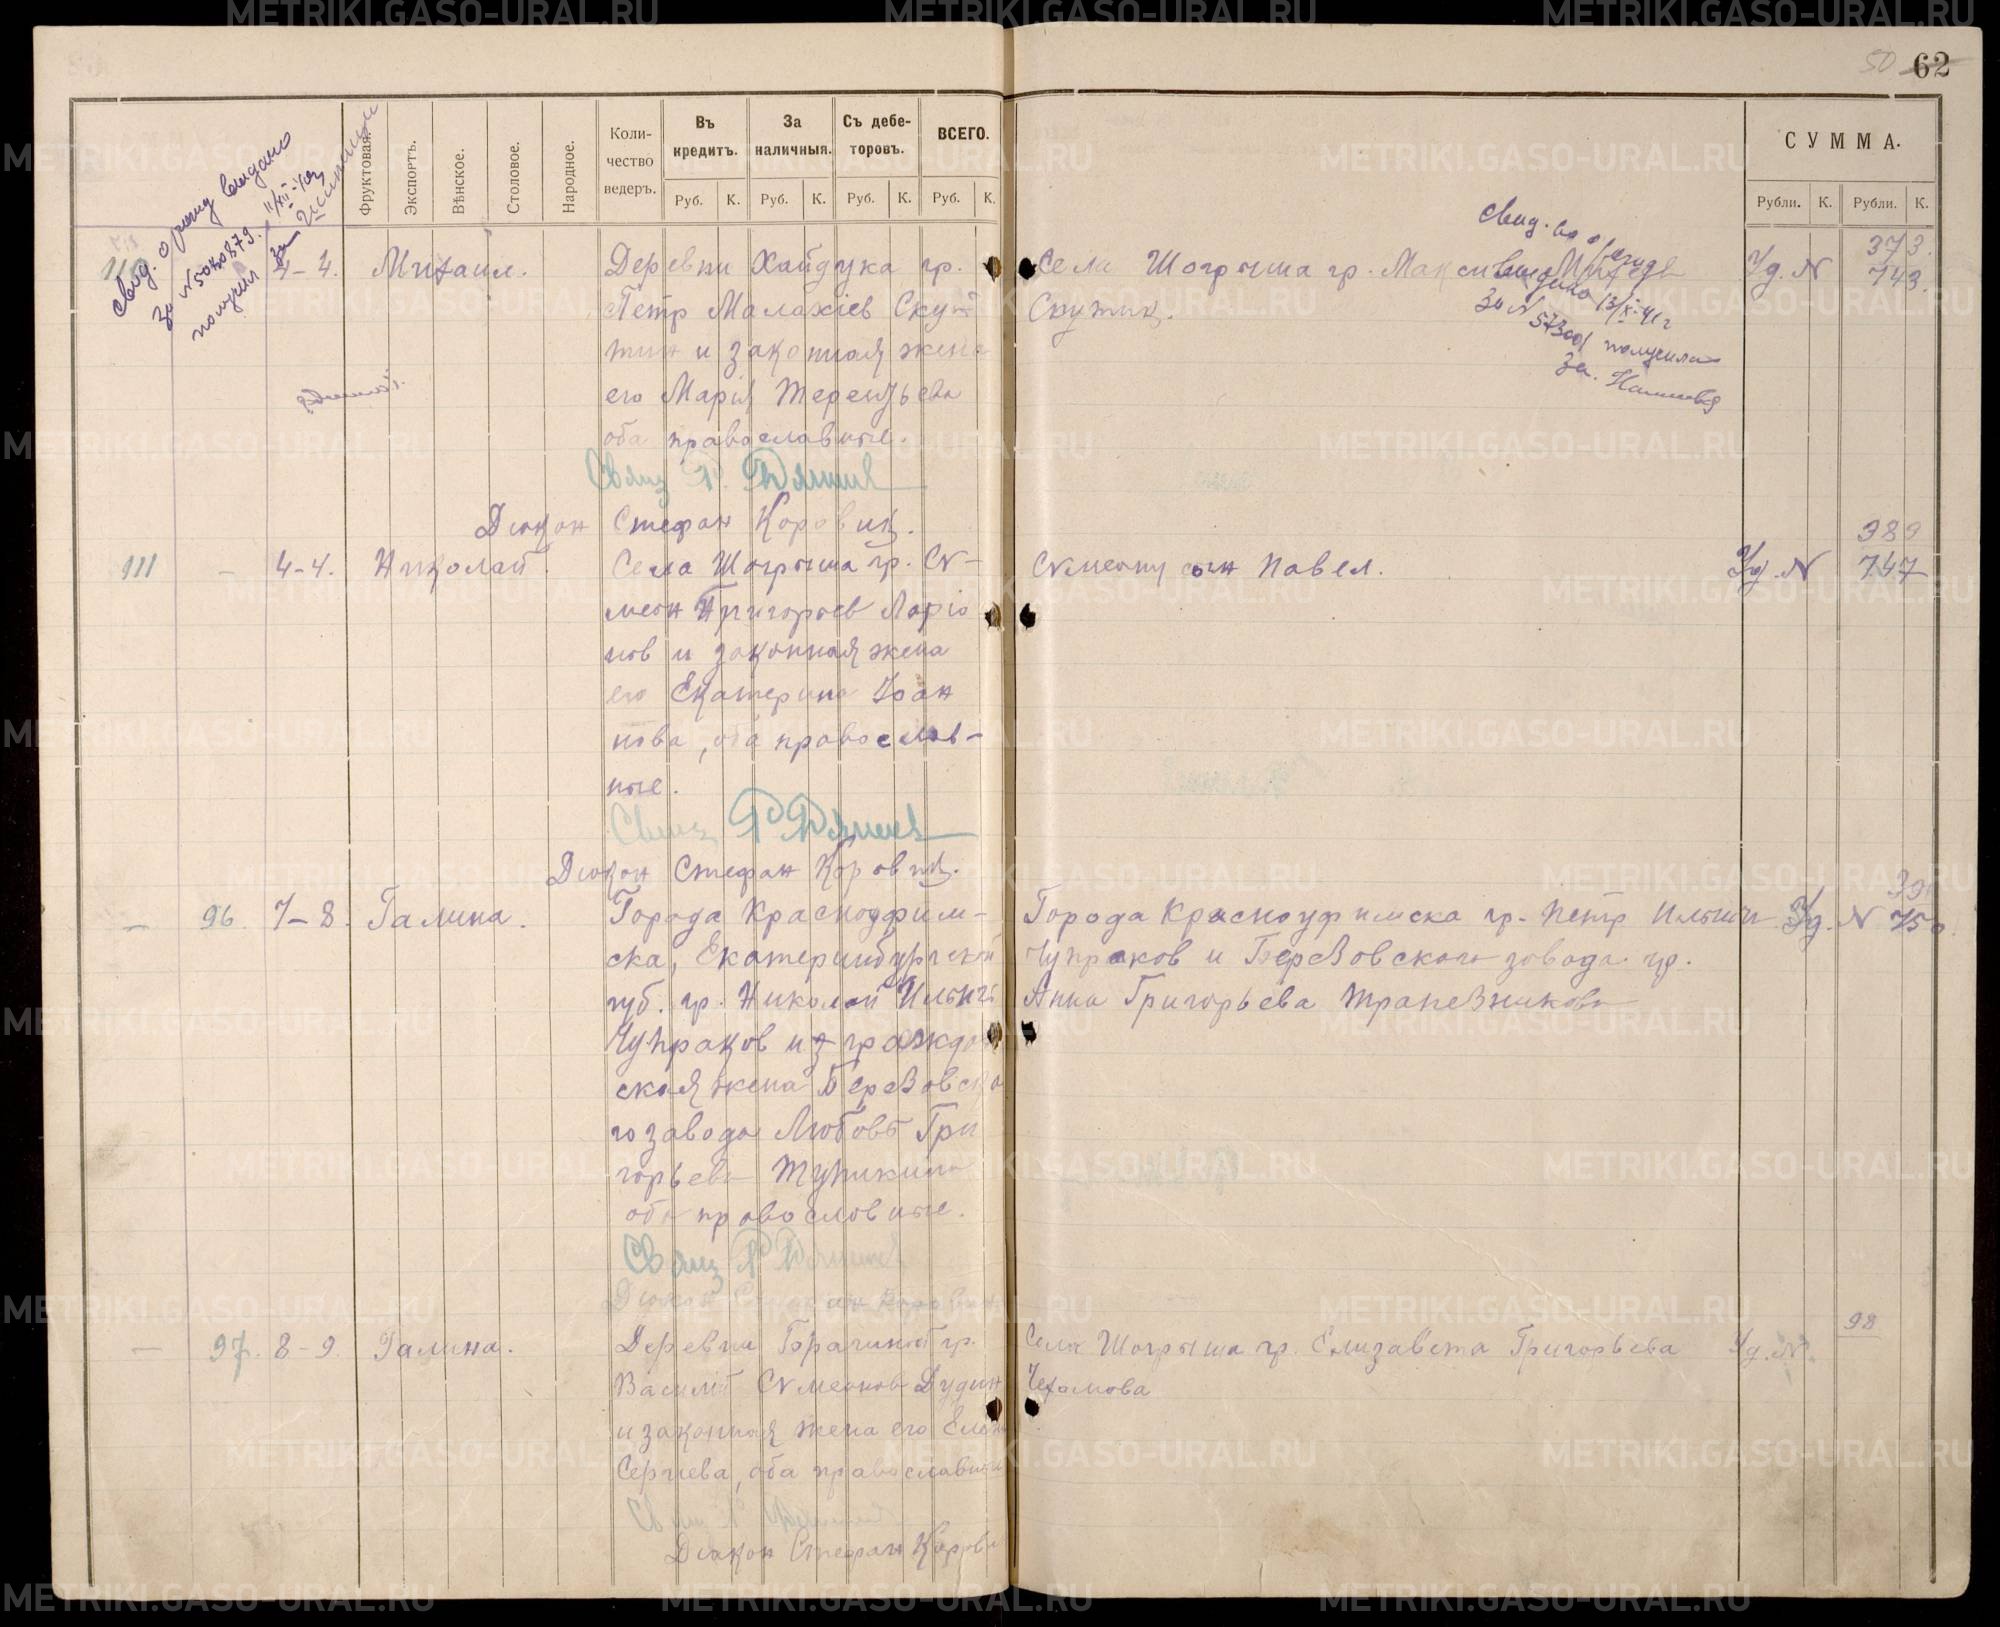 50 62
Фруктовая.
Экспортъ.
Вѣнское.
Столовое.
Народное.
Коли-
чество
ведеръ.
Въ
кредитъ.
За
наличныя.
Съ дебе-
торовъ.
ВСЕГО.
Руб. К. Руб. К. Руб. К. Руб. К.
СУММА.
Рубли. К. Рубли. К.
свид. о рожд выдано
за №5030879.
получил
110 4-4. Михаил.
Деревни Хайдука гр.
Петр Малахіев Скут
тин и законная жена
его Марія Терентьева
оба православные.
Свящ Р.
Диакон Стефан Коровин.
Села Шогрыша гр.
Скутин.
свид. о
за №
573001 получила
за.
Уд. N 373.
743.
111 - 4-4. Николай.
Села Шогрыша гр. Сѵ-
меон Григорьев Ларіо
нов и законная жена
его Екатерина Іоан
нова, оба православ-
ные.
Свящ Р
Диакон Стефан Коровин.
Сѵмеону сын Павел.
Уд. N 389
747
- 96. 7-8. Галина.
Города Красноуфим-
ска, Екатеринбургской
губ. гр. Николай Ильич
Чупраков и граждан
ская жена Березовско
го завода Любовь Гри
горьева
оба православные.
Свящ Р
Диакон Стефан Коровин
Города Красноуфимска гр. Петр Ильич
Чупраков и Березовского завода гр.
Анна Григорьева Трапезникова
Уд. N 750
- 97. 8-9. Галина.
Деревни гр.
Василий Сѵмеонов Дудин
и законная жена его Елена
Сергиева, оба православные
Свящ Р
Диакон Стефан Корови
Села Шогрыша гр. Елизавета Григорьева
Чехомова
Уд. N. 98
METRIKI.GASO-URAL.RU